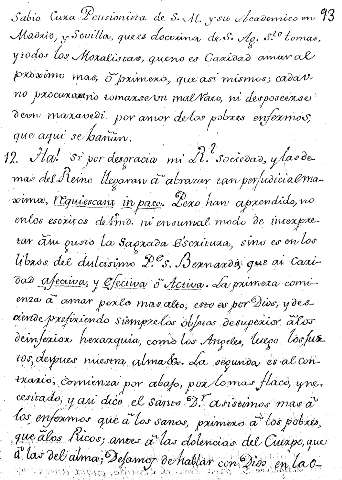 93
Sabio Cura Pensionina de S. M. y su Academico en
Madrid, y Sevilla, que es doctrina de S. Ag. Sto tomas,
y todos los Moralistas, que no es Caridad amar al
proximo mas, ô primero, que asi mismos; cada v
no procurarà no tomarse un mal Vaco, ni desposeerse
de un maravedi por amor de los pobres enfermos,
que aqui se bañan.
12. Ha! si por desgracia mi Rl Sociedad, y las de
mas del Reino llegaran â abrazar tan perjudicial ma
xima, requiescant in pace. Pero han aprendido, no
en los escritos de ni en su mal modo de interpre
tar â su gusto la Sagrada Escritura, sino es en los
libros del dulcisimo Pe S. Bernardo; que ai Cari
dad afectiva; y efectiva ô Activa. La primera comi
enza â amar por lo mas alto, esto es por Dios, y des
ciende prefiriendo siempre los objetos de superior â los
de inferior herarquia, como los Angeles, luego los Jus
tos, despues nuestra alma &a. La segunda es al con
trario, comienza por abajo, por lo mas flaco, y ne
cesitado, y asi dice el santo Dr asistimos mas â
los enfermos que â los sanos, primero â los pobres,
que â los Ricos; antes â las dolencias del Cuerpo, que
â las del alma; Dejamos de hablar con Dios en la o-